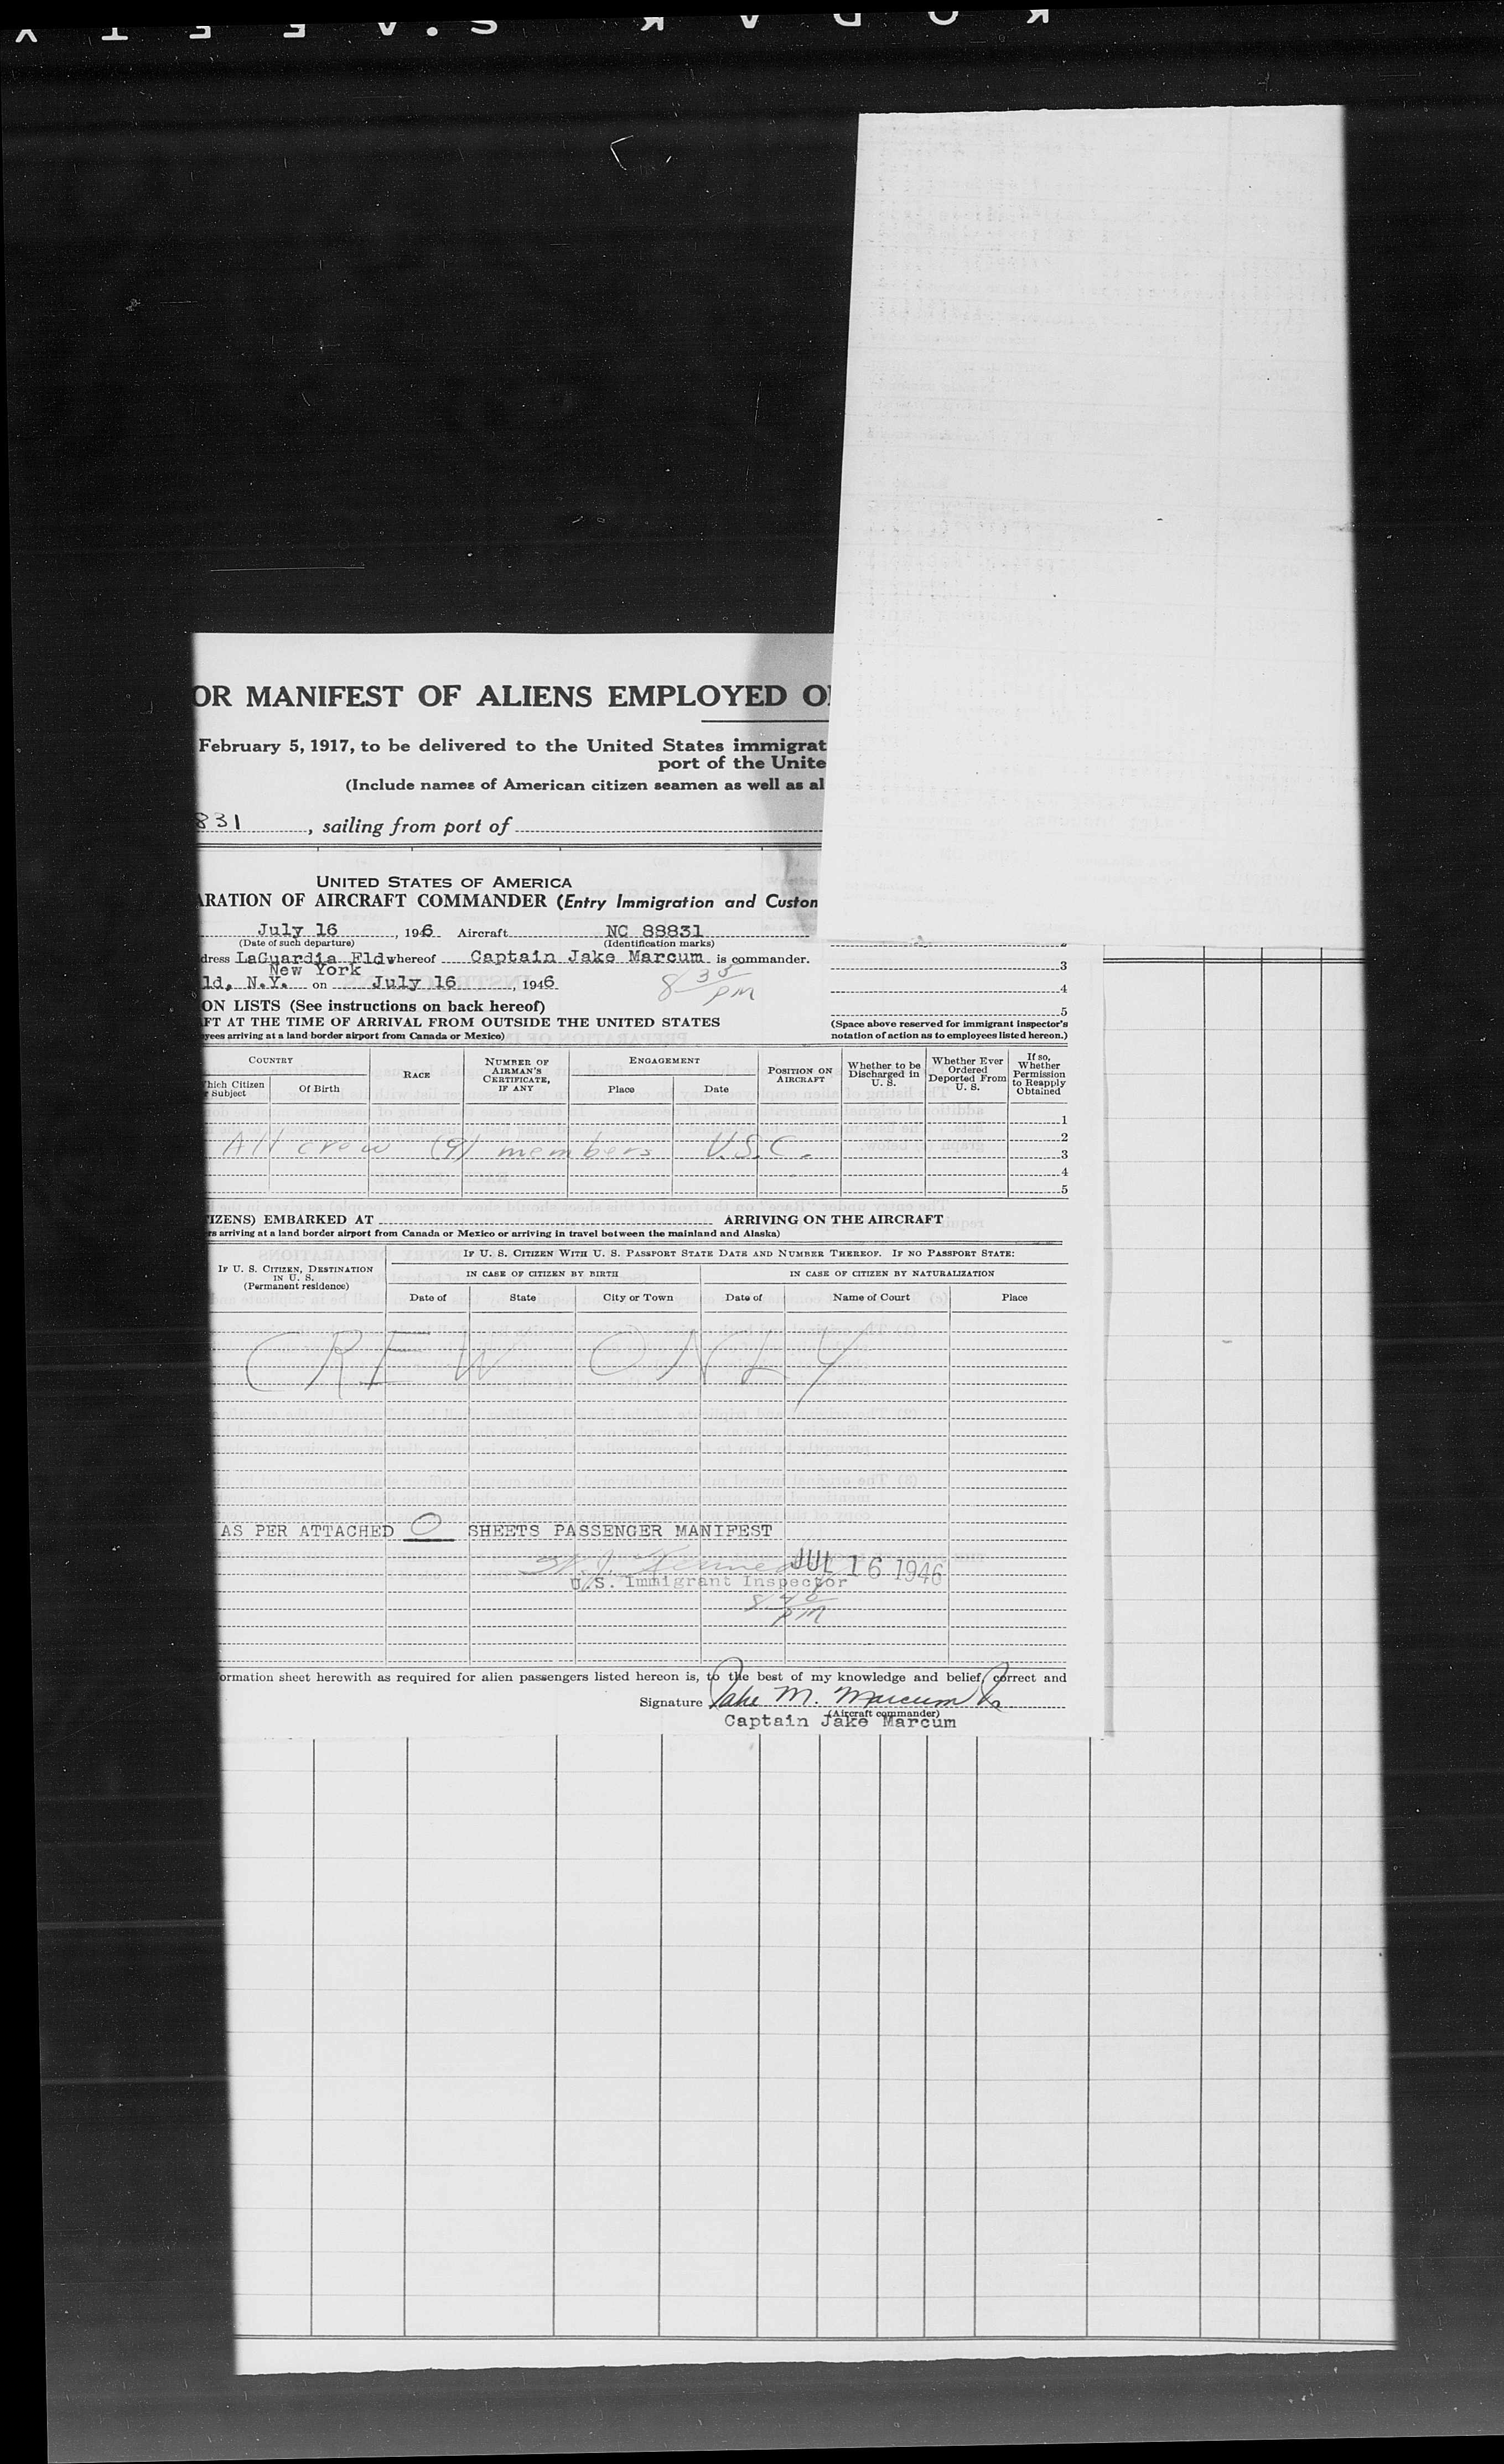 OR MANIFEST OF ALIENS EMPLOYED O
February 5, 1917, to be delivered to the United States immigrat
port of the Unite
(Include names of American citizen seamen as well as al
831, sailing from port of
UNITED STATES OF AMERICA
ARATION OF AIRCRAFT COMMANDER (Entry Immigration and Custom
July 16, 1946 Aircraft NC 88831
(Date of such departure) (Identification marks)
dress LaGuardia Fld whereof Captain Jake Marcum is commander.
New York
ld, N.Y. on July 16, 1946
8 33 PM
3
4
5
ON LISTS (See instructions on back hereof)
AFT AT THE TIME OF ARRIVAL FROM OUTSIDE THE UNITED STATES
yees arriving at a land border airport from Canada or Mexico)
(Space above reserved for immigrant inspector's
notation of action as to employees listed hereon.)
COUNTRY
Which Citizen
r Subject
Of Birth
RACE
NUMBER OF
AIRMAN'S
CERTIFICATE,
IF ANY
ENGAGEMENT
Place
Date
POSITION ON
AIRCRAFT
Whether to be
Discharged in
U. S.
Whether Ever
Ordered
Deported From
U. S.
If so,
Whether
Permission
to Reapply
Obtained
1
2
All crew (9) members U.S.C.
3
4
5
IZENS) EMBARKED AT ARRIVING ON THE AIRCRAFT
rs arriving at a land border airport from Canada or Mexico or arriving in travel between the mainland and Alaska)
IF U. S. CITIZEN, DESTINATION
IN U. S.
(Permanent residence)
IF U. S. CITIZEN WITH U. S. PASSPORT STATE DATE AND NUMBER THEREOF. IF NO PASSPORT STATE:
IN CASE OF CITIZEN BY BIRTH
IN CASE OF CITIZEN BY NATURALIZATION
Date of
State
City or Town
Date of
Name of Court
Place
CREW ONLY
AS PER ATTACHED 0 SHEETS PASSENGER MANIFEST
JUL 16 1946
U.S. Immigrant Inspector
PM
ormation sheet herewith as required for alien passengers listed hereon is, to the best of my knowledge and belief, correct and
Signature Jake M. Marcum Jr
(Aircraft commander)
Captain Jake Marcum